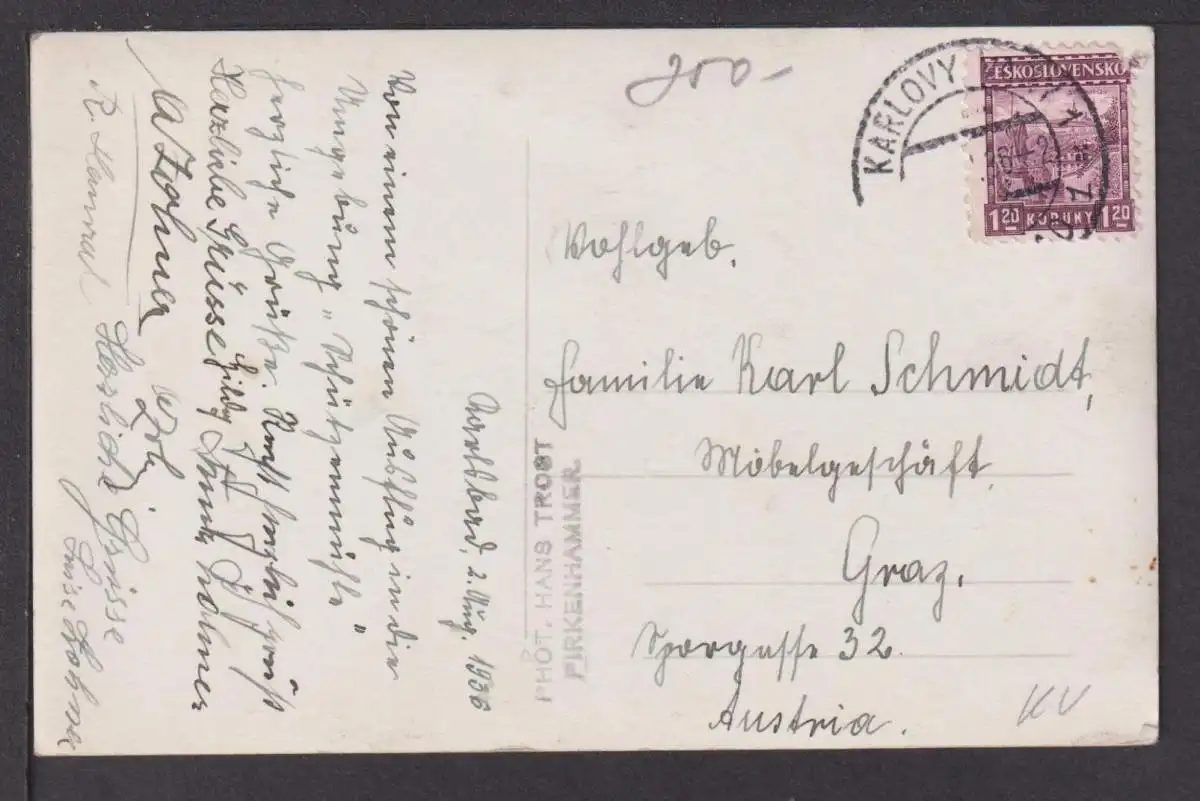 200-
KARLOVY
ČESKOSLOVENSKO
1.20 KORUNY 1.20
Wohlgeb.
Familie Karl Schmidt,
Möbelgeschäft
Graz.
Sporgasse 32.
Austria.
KV
PHOT. HANS TROST
PIRKENHAMMER
Karlsbad, 2. Aug. 1936
Von einem schönen Ausflug in die
Umgebung „Schützenmühle"
herzliche Grüße. Auch herzlich grüßt
Herzliche Grüsse
Herzliche Grüsse
Luise